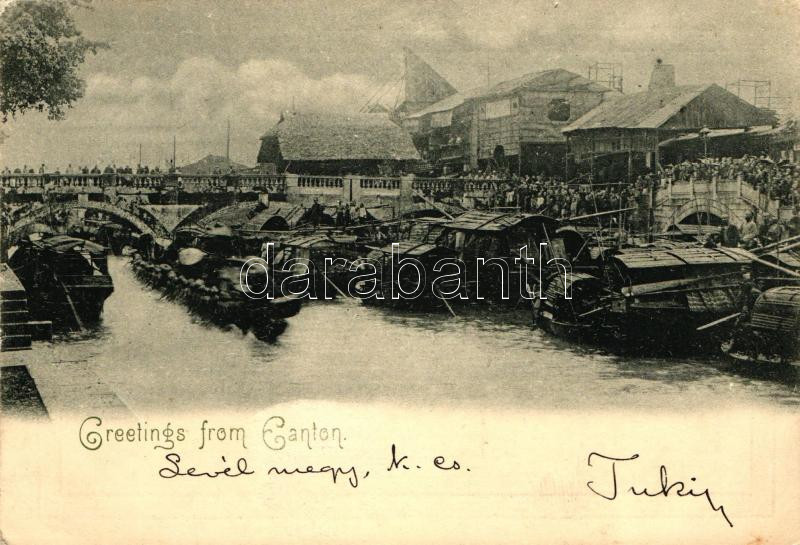 darabanth
Greetings from Canton.
Levél megy, k. cs.
Tukiy